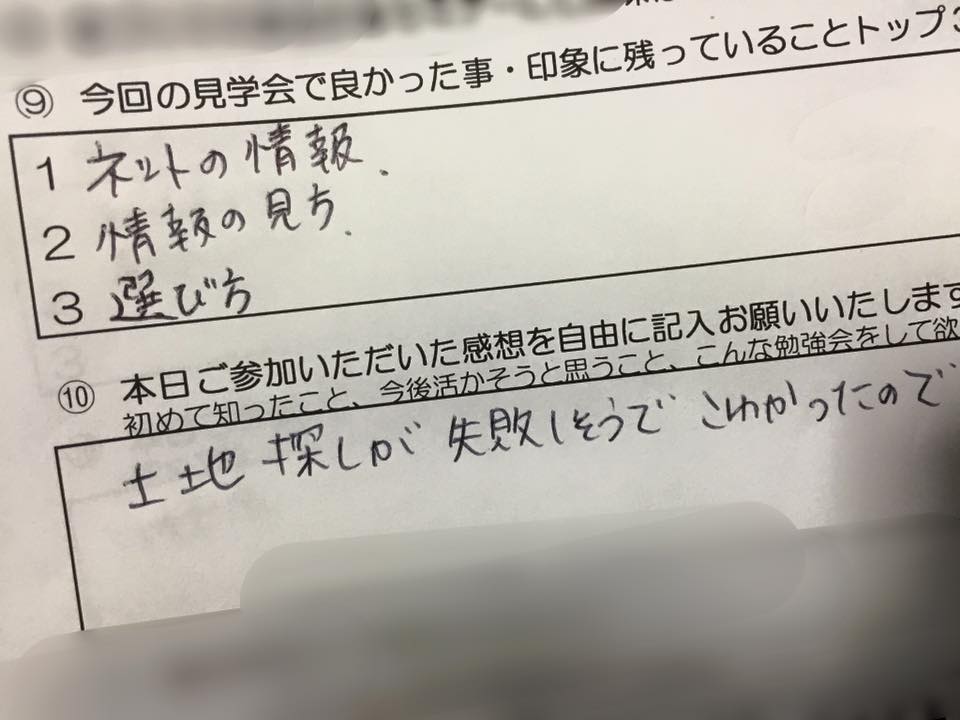 ⑨ 今回の見学会で良かった事・印象に残っていることトップ3
1 ネットの情報.
2 情報の見方.
3 選び方
⑩ 本日ご参加いただいた感想を自由に記入お願いいたします
初めて知ったこと、今後活かそうと思うこと、こんな勉強会をして欲
土地探しが失敗しそうでこわかったので